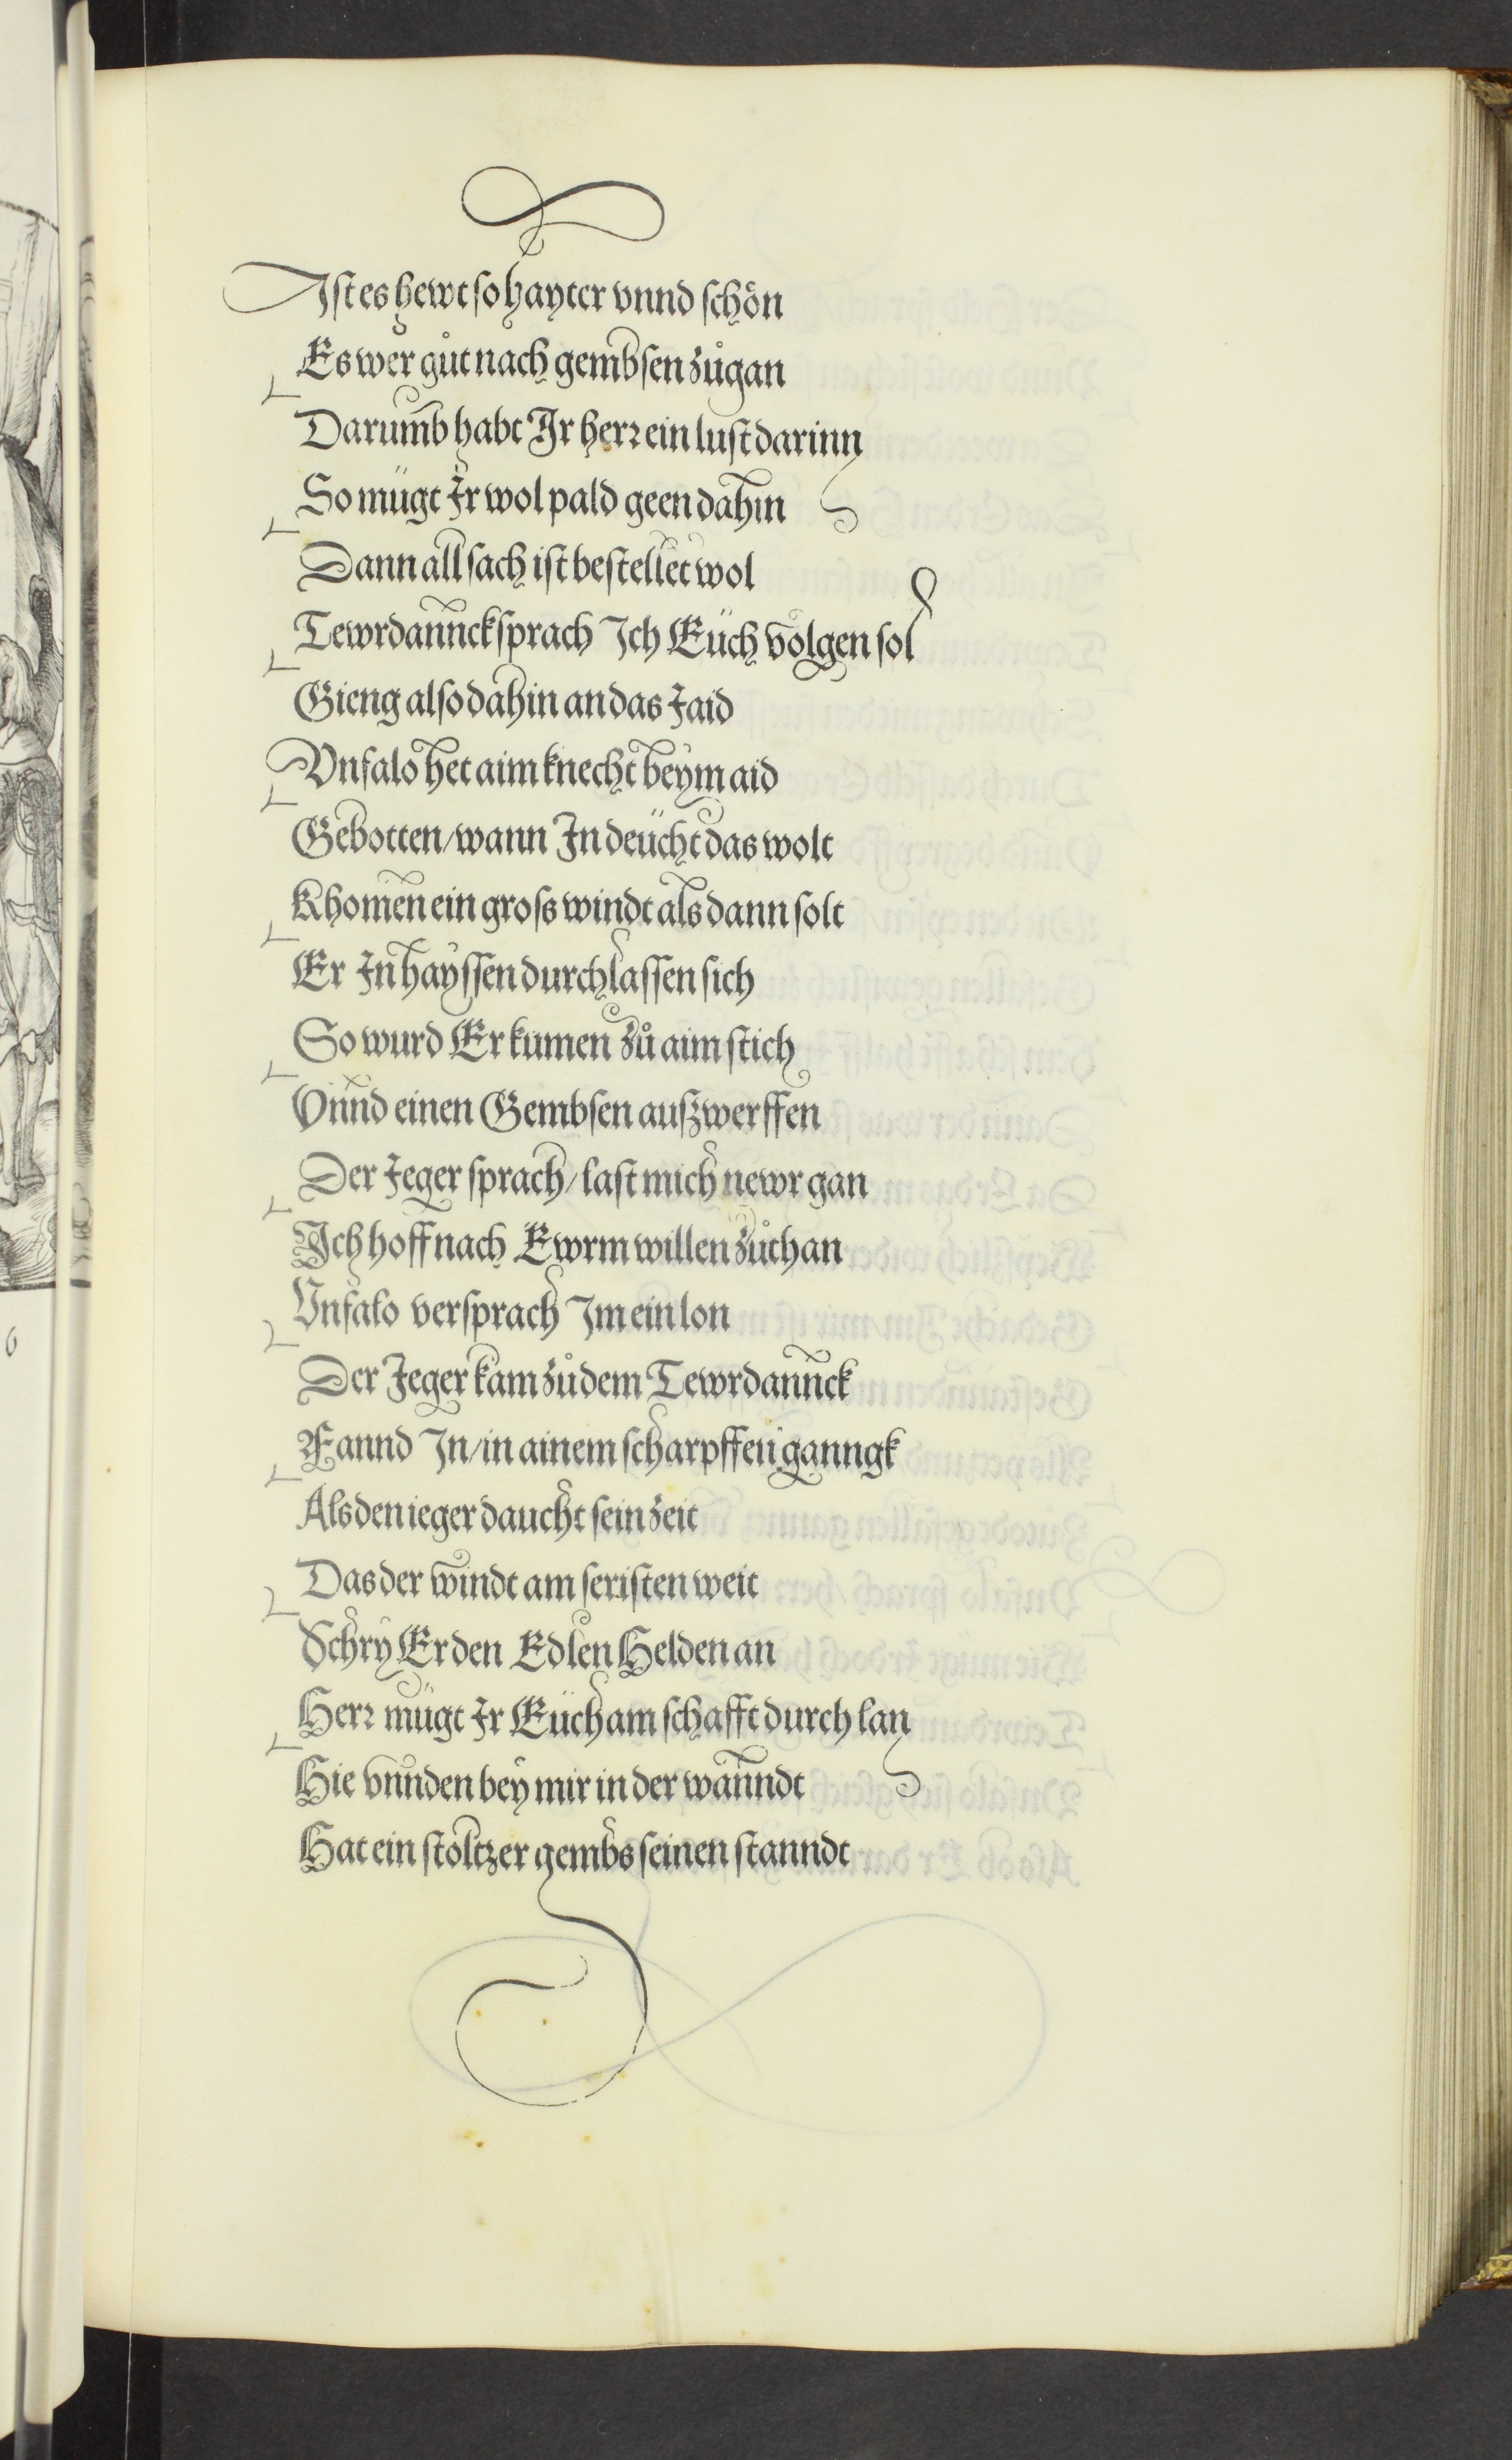 Iſt es hewt ſo hayter vnnd ſchön
Es wer gůt nach gembſen zů gan
Darumb habt Ir herr ein luſt darinn
So mügt Ir wol pald geen dahin
Dann all ſach iſt beſtellet wol
Tewrdannck ſprach Ich Eüch volgen ſol
Gieng alſo dahin an das Jaid
Vnfalo het aim knecht beym aid
Gebotten/wann In deücht das wolt
Khomen ein groſs windt als dann ſolt
Er In hayſſen durchlaſſen ſich
So wurd Er kumen zů aim ſtich
Vnnd einen Gembſen auſzwerffen
Der Jeger ſprach/laſt mich newr gan
Ich hoff nach Ewrm willen zůthan
Vnfalo verſprach Im ein lon
Der Jeger kam zů dem Tewrdannck
Fannd In/in ainem ſcharpffen ganngk
Als den ieger daucht ſein zeit
Das der windt am ſeriſten weit
Schry Er den Edlen Helden an
Herr mügt Ir Eüch am ſchafft durch lan
Hie vnnden bey mir in der wanndt
Hat ein ſtoltzer gembs ſeinen ſtanndt